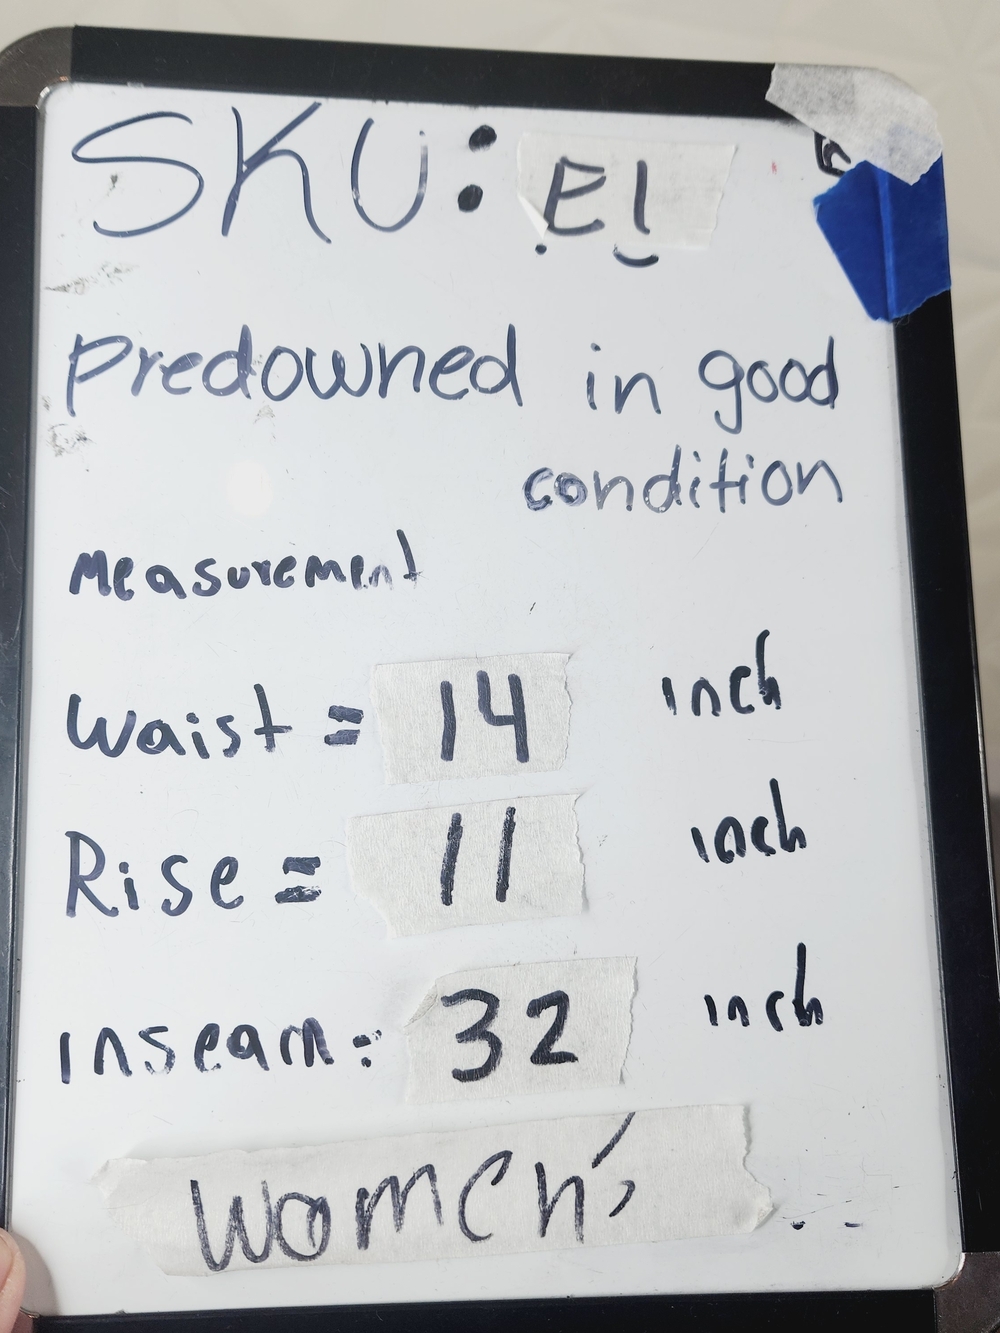 SKU: E1
Predowned in good
condition
Measurement
Waist = 14 inch
Rise = 11 inch
Inseam: 32 inch
Women's